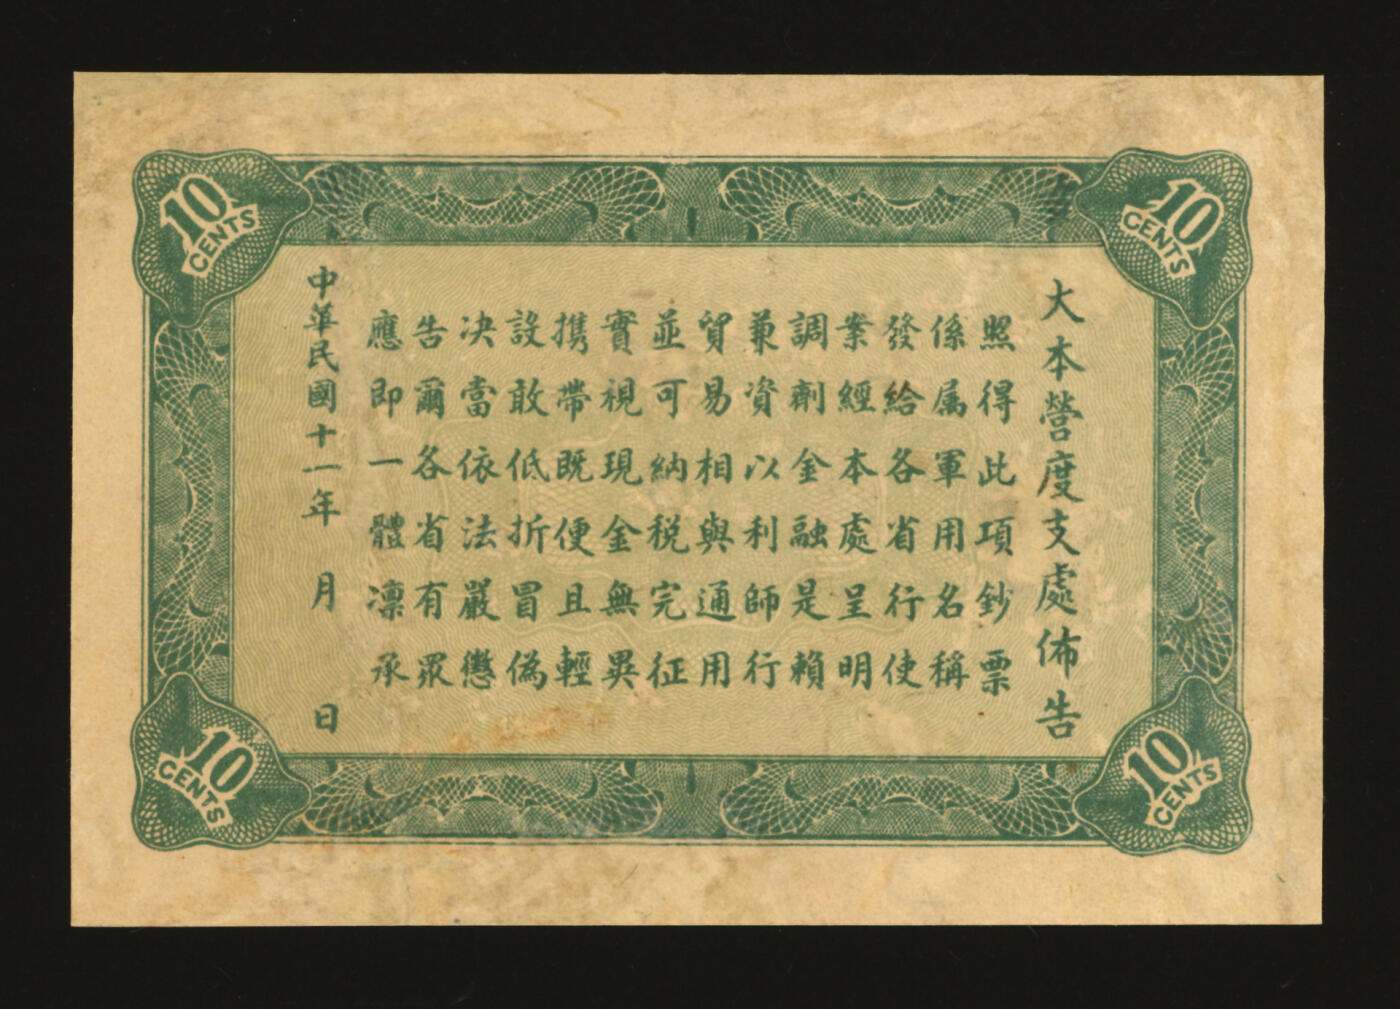 10
CENTS
10
CENTS
大本營度支處佈告
照得此項鈔票
係属軍用名稱
發給各省行使
業經本處呈明
調劑金融是賴
兼資以利師行
貿易相與通用
並可納税完征
實視現金無異
携帶既便且輕
設敢低折冒偽
決當依法嚴懲
告爾各省有眾
應即一體凛承
中華民國十一年 月 日
10
CENTS
10
CENTS